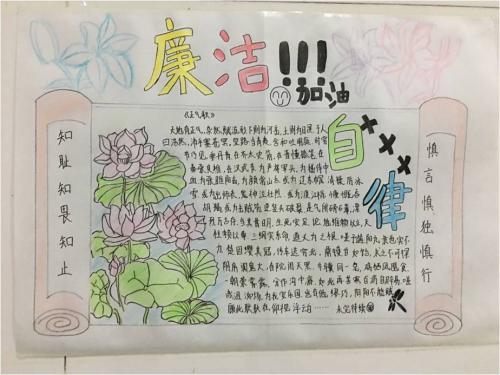 廉洁!!!
加油
自律
知耻知畏知止
慎言慎独慎行
《正气歌》
天地有正气,杂然赋流形,下则为河岳,上则为日星,于人
曰浩然,沛乎塞苍冥,皇路当清夷,含和吐明庭,时穷
节乃见,一一垂丹青,在齐太史简,在晋董狐笔,在
秦张良椎,在汉苏武节,为严将军头,为嵇侍中
血,为张睢阳齿,为颜常山舌,或为辽东帽,清操厉冰
雪,或为出师表,鬼神泣壮烈,或为渡江楫,慷慨吞
胡羯,或为击贼笏,逆竖头破裂,是气所磅礴,凛
烈万古存,当其贯日月,生死安足论,地维赖以立,天
柱赖以尊,三纲实系命,道义为之根,嗟予遘阳九,隶也实不
力,楚囚缨其冠,传车送穷北,鼎镬甘如饴,求之不可得
阴房阗鬼火,春院闭天黑,牛骥同一皂,鸡栖凤凰食
一朝蒙雾露,分作沟中瘠,如此再寒暑,百沴自辟易,嗟
哉沮洳场,为我安乐国,岂有他缪巧,阴阳不能贼
顾此耿耿在,仰视浮云白……未完待续